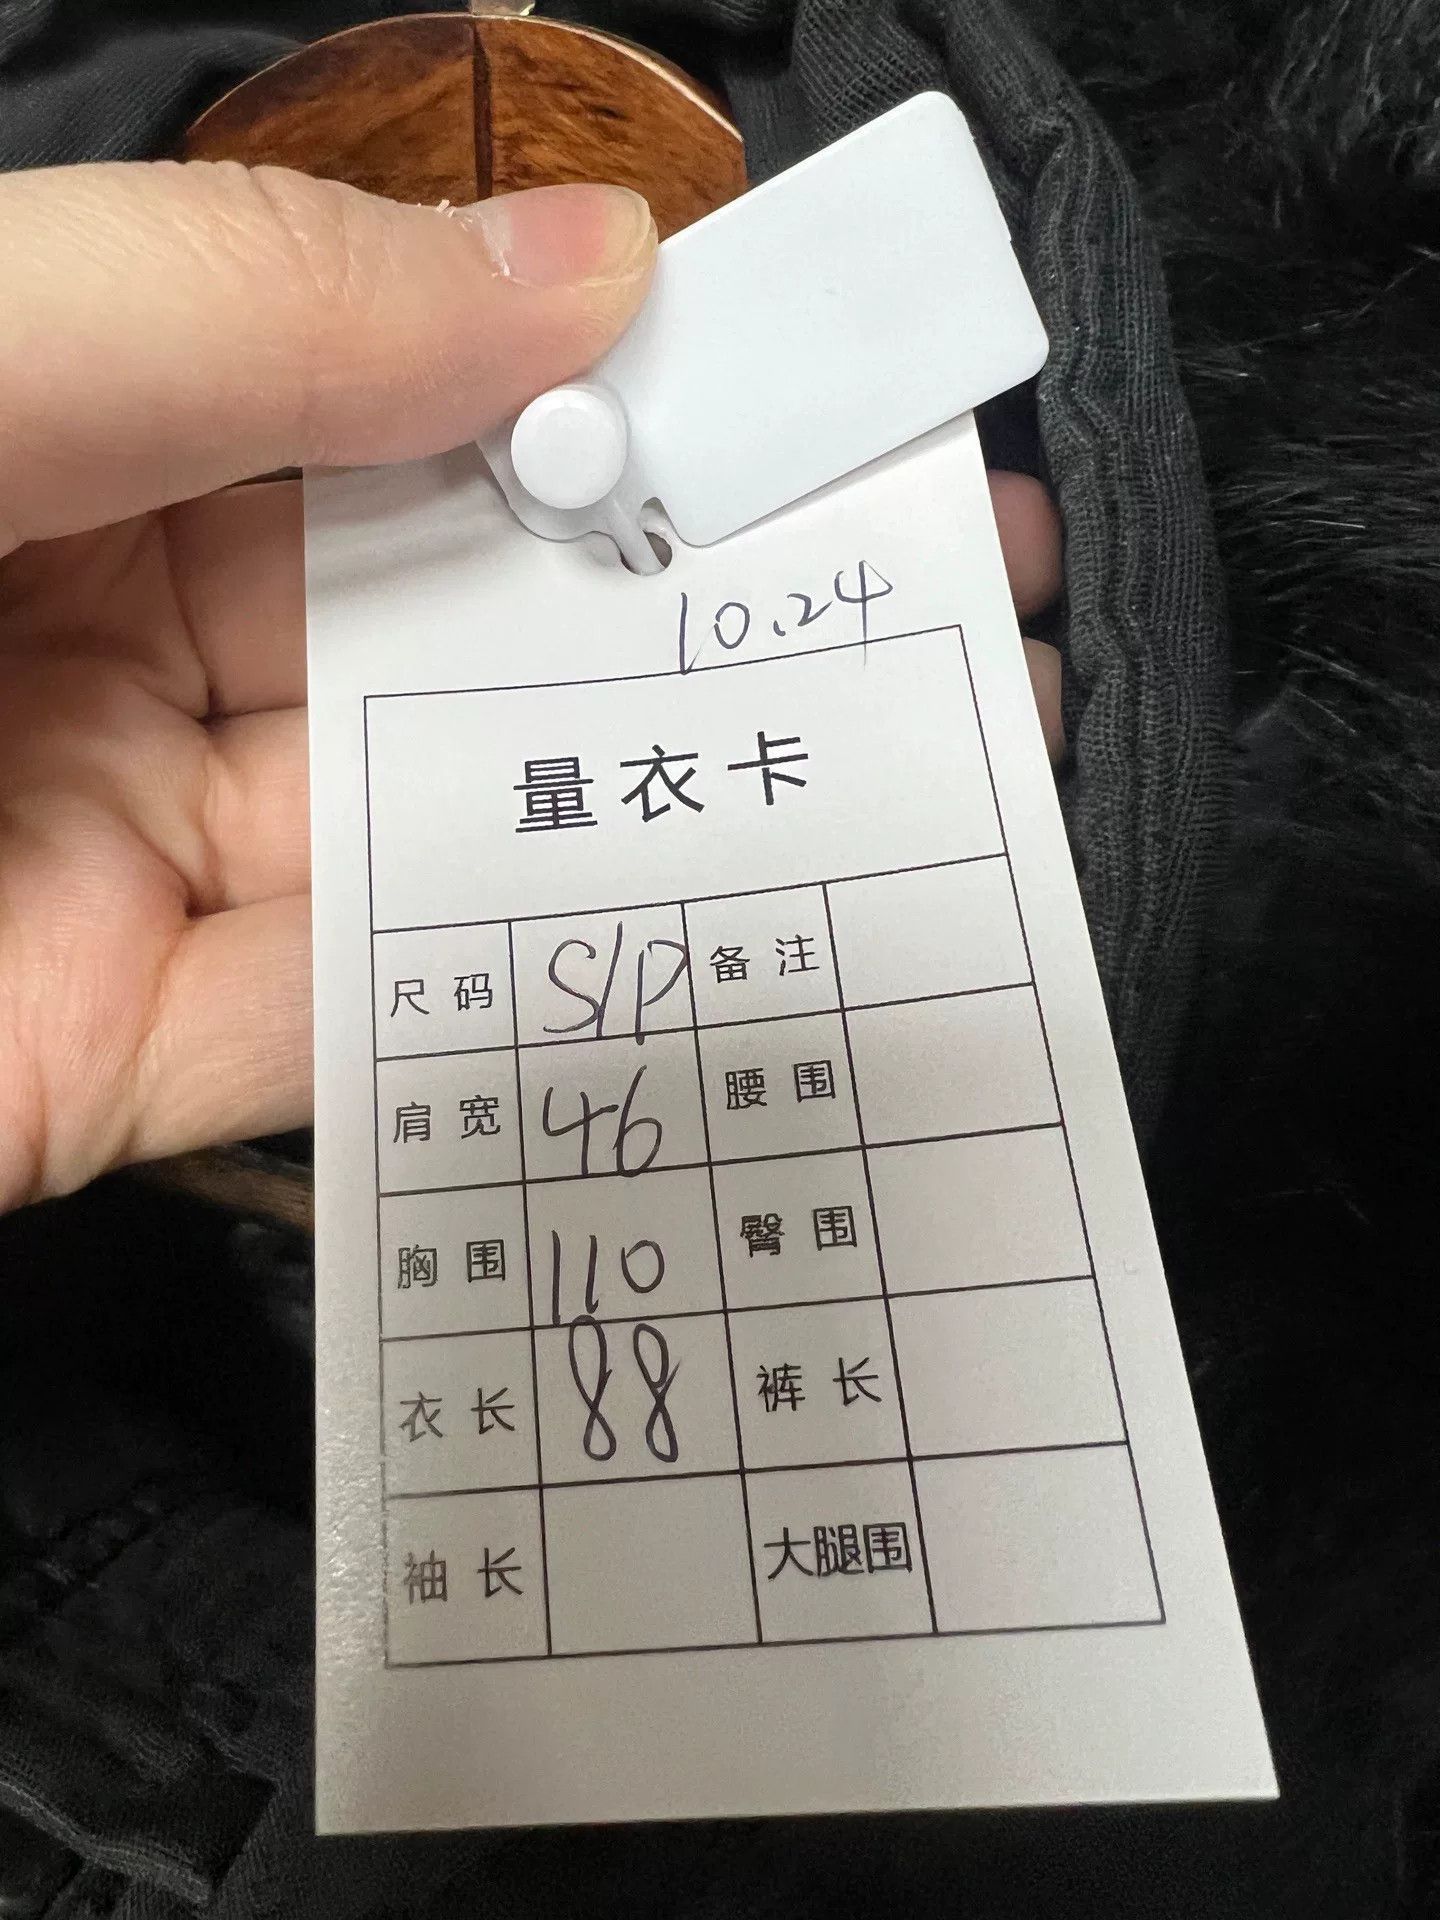 10.24
量衣卡
尺码 S/P 备注
肩宽 46 腰围
胸围 110 臀围
衣长 88 裤长
袖长 大腿围